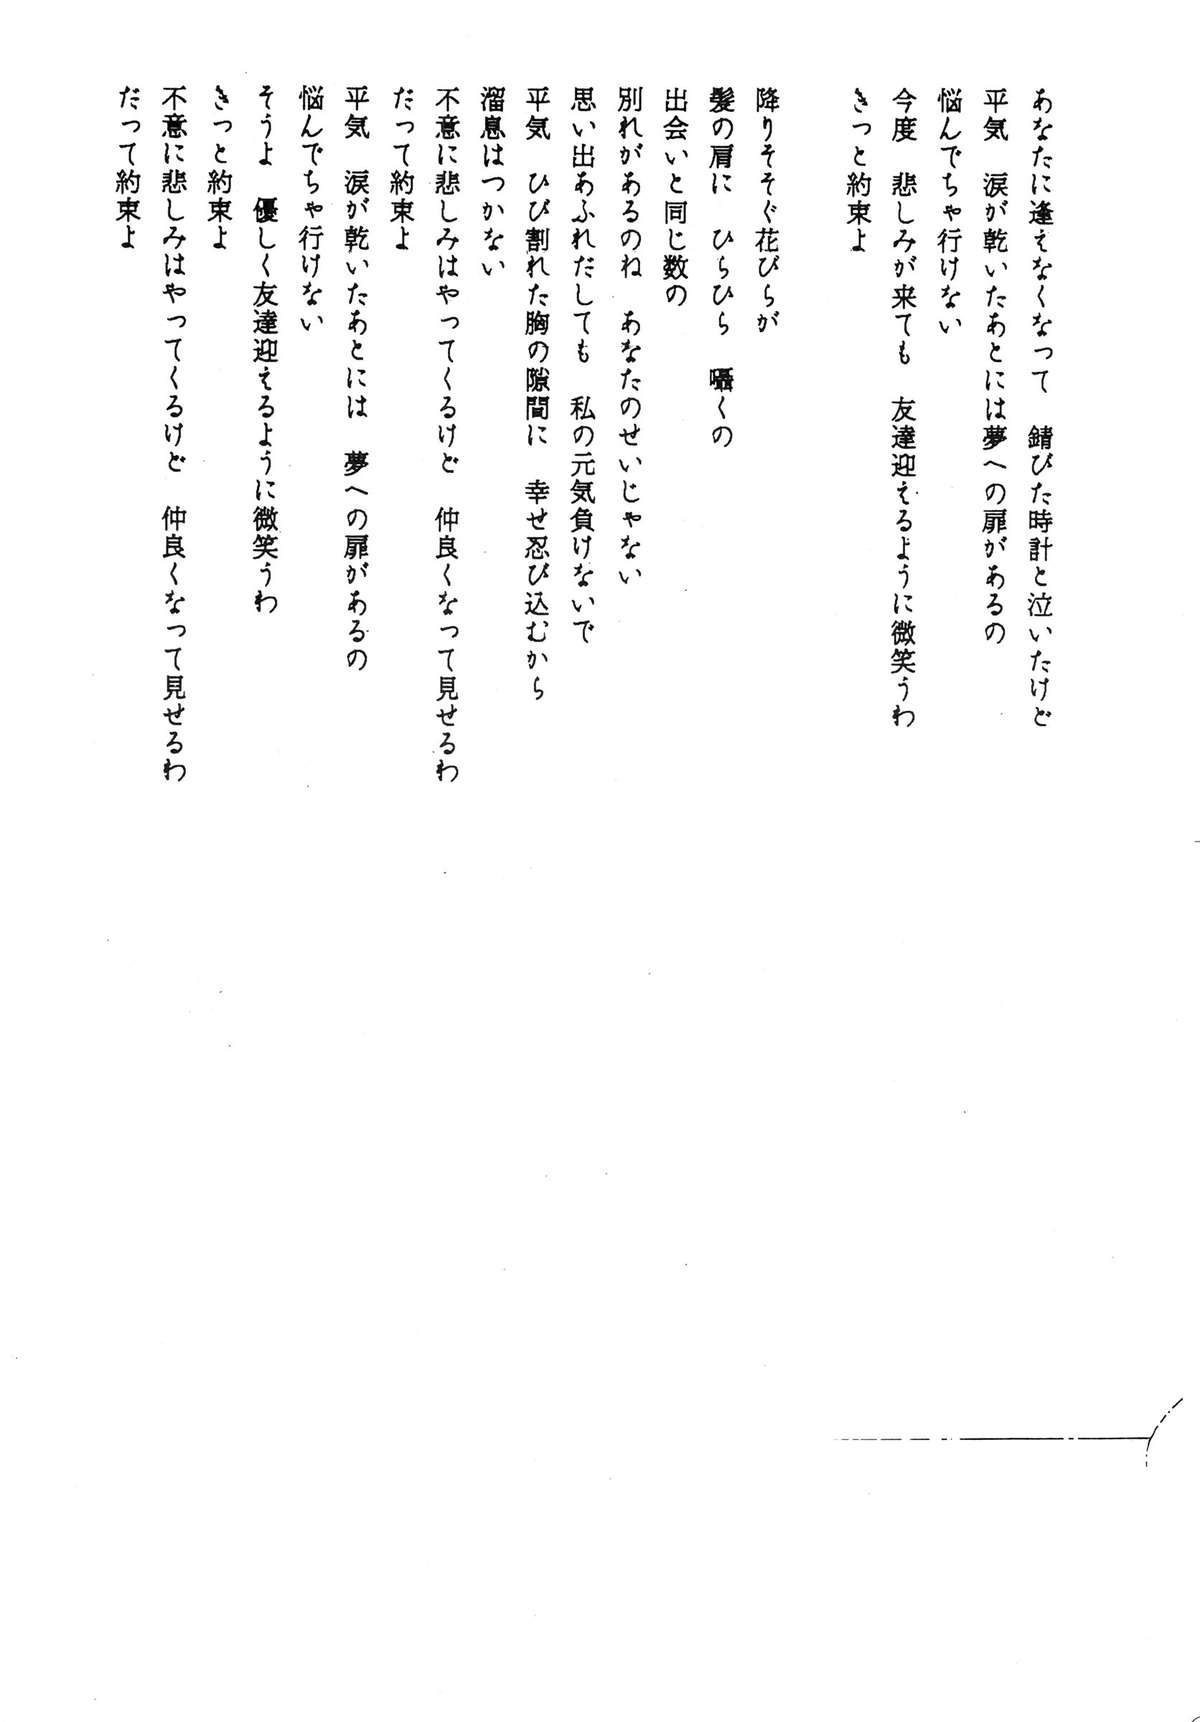 あなたに逢えなくなって　錆びた時計と泣いたけど
平気　涙が乾いたあとには夢への扉があるの
悩んでちゃ行けない
今度　悲しみが来ても　友達迎えるように微笑うわ
きっと約束よ
降りそそぐ花びらが
髪の肩に　ひらひら　囁くの
出会いと同じ数の
別れがあるのね　あなたのせいじゃない
思い出あふれだしても　私の元気負けないで
平気　ひび割れた胸の隙間に　幸せ忍び込むから
溜息はつかない
不意に悲しみはやってくるけど　仲良くなって見せるわ
だって約束よ
平気　涙が乾いたあとには　夢への扉があるの
悩んでちゃ行けない
そうよ　優しく友達迎えるように微笑うわ
きっと約束よ
不意に悲しみはやってくるけど　仲良くなって見せるわ
だって約束よ